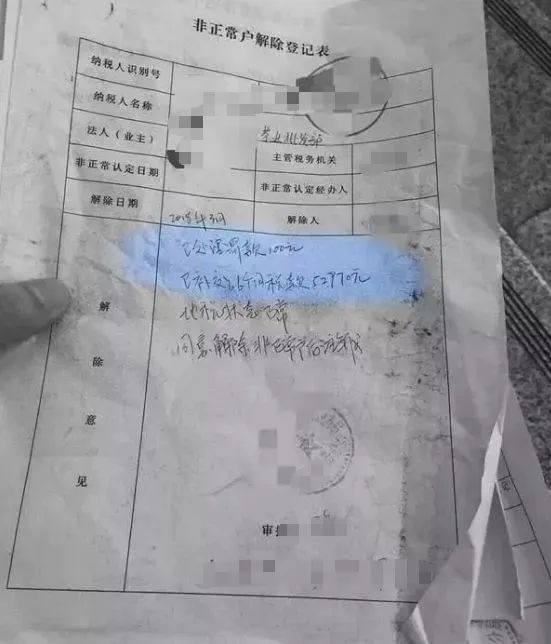 非正常户解除登记表
纳税人识别号
纳税人名称
法人（业主） 茶业批发部
主管税务机关
非正常认定日期 非正常认定经办人
解除日期 2018年3月 解除人
已处理罚款100元
已补交 个月税款52970元
他税状态正常
同意解除非正常户
解除意见
审批